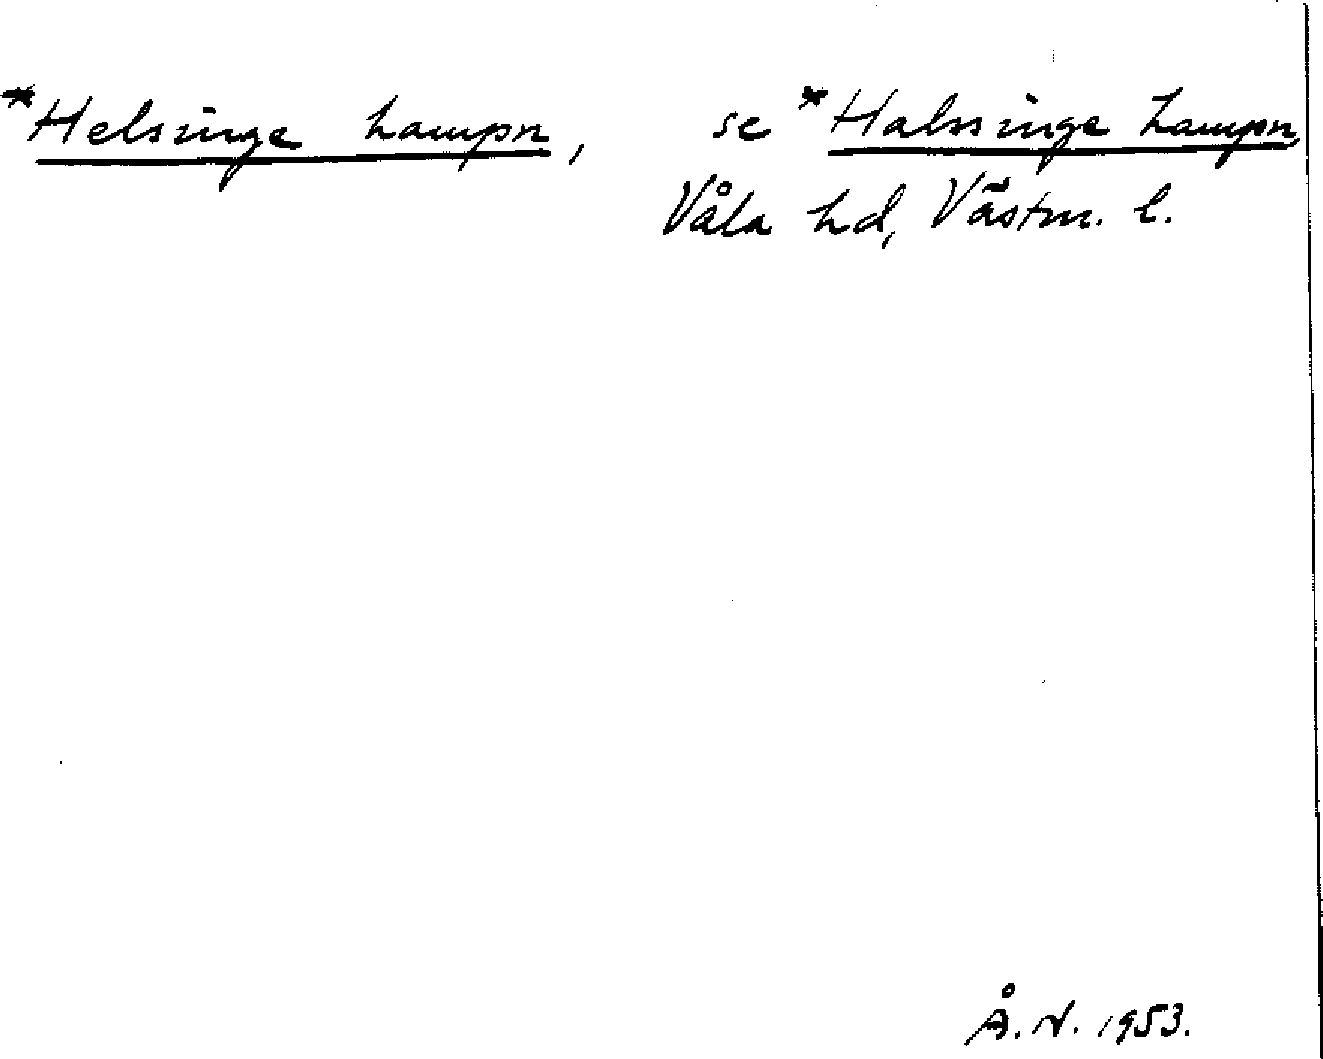 *Helsinge hampn, se *Halssinge hampn,
Våla hd, Västm. l.
Å. N. 1953.